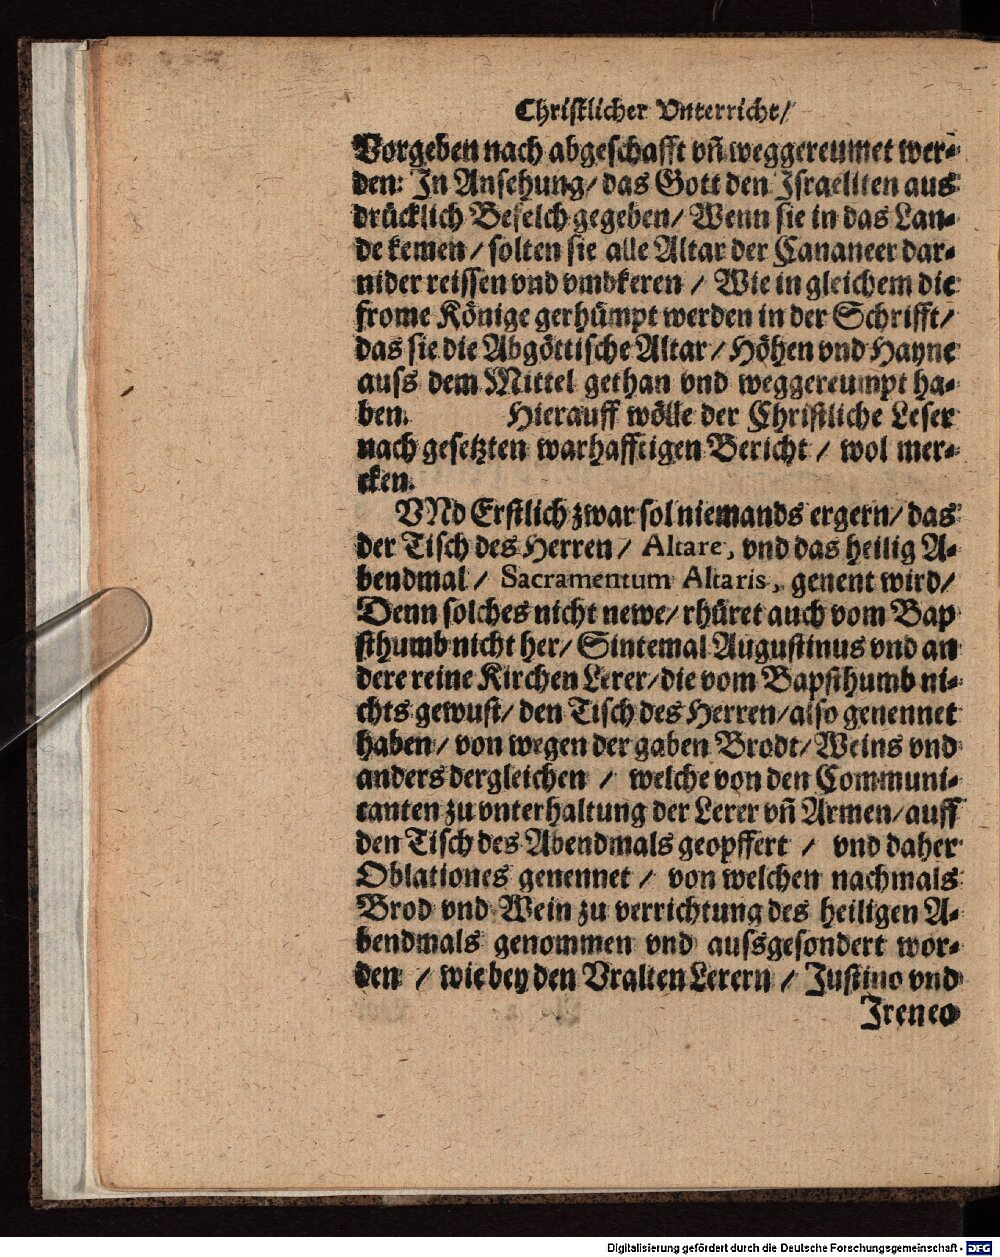 Christlicher Vnterricht/
Vorgeben nach abgeschafft vn̄ weggereumet wer-
den: In Ansehung/ das Gott den Israeliten aus
drücklich Befelch gegeben/ Wenn sie in das Lan-
de kemen / solten sie alle Altar der Cananeer dar-
nider reissen vnd vmbkeren / Wie in gleichem die
frome Könige gerhümpt werden in der Schrifft/
das sie die Abgöttische Altar / Höhen vnd Hayne
auss dem Mittel gethan vnd weggereumpt ha-
ben. Hierauff wölle der Christliche Leser
nach gesetzten warhafftigen Bericht / wol mer-
cken.
VNd Erstlich zwar sol niemands ergern/ das
der Tisch des Herren / Altare, vnd das heilig A-
bendmal / Sacramentum Altaris, genent wird/
Denn solches nicht newe/ rhüret auch vom Bap
sthumb nicht her/ Sintemal Augustinus vnd an
dere reine Kirchen Lerer/ die vom Bapsthumb ni-
chts gewust/ den Tisch des Herren/ also genennet
haben/ von wegen der gaben Brodt/ Weins vnd
anders dergleichen / welche von den Communi-
canten zu vnterhaltung der Lerer vn̄ Armen/ auff
den Tisch des Abendmals geopffert / vnd daher
Oblationes genennet / von welchen nachmals
Brod vnd Wein zu verrichtung des heiligen A-
bendmals genommen vnd aussgesondert wor-
den / wie bey den Vralten Lerern / Justino vnd
Ireneo
Digitalisierung gefördert durch die Deutsche Forschungsgemeinschaft - DFG